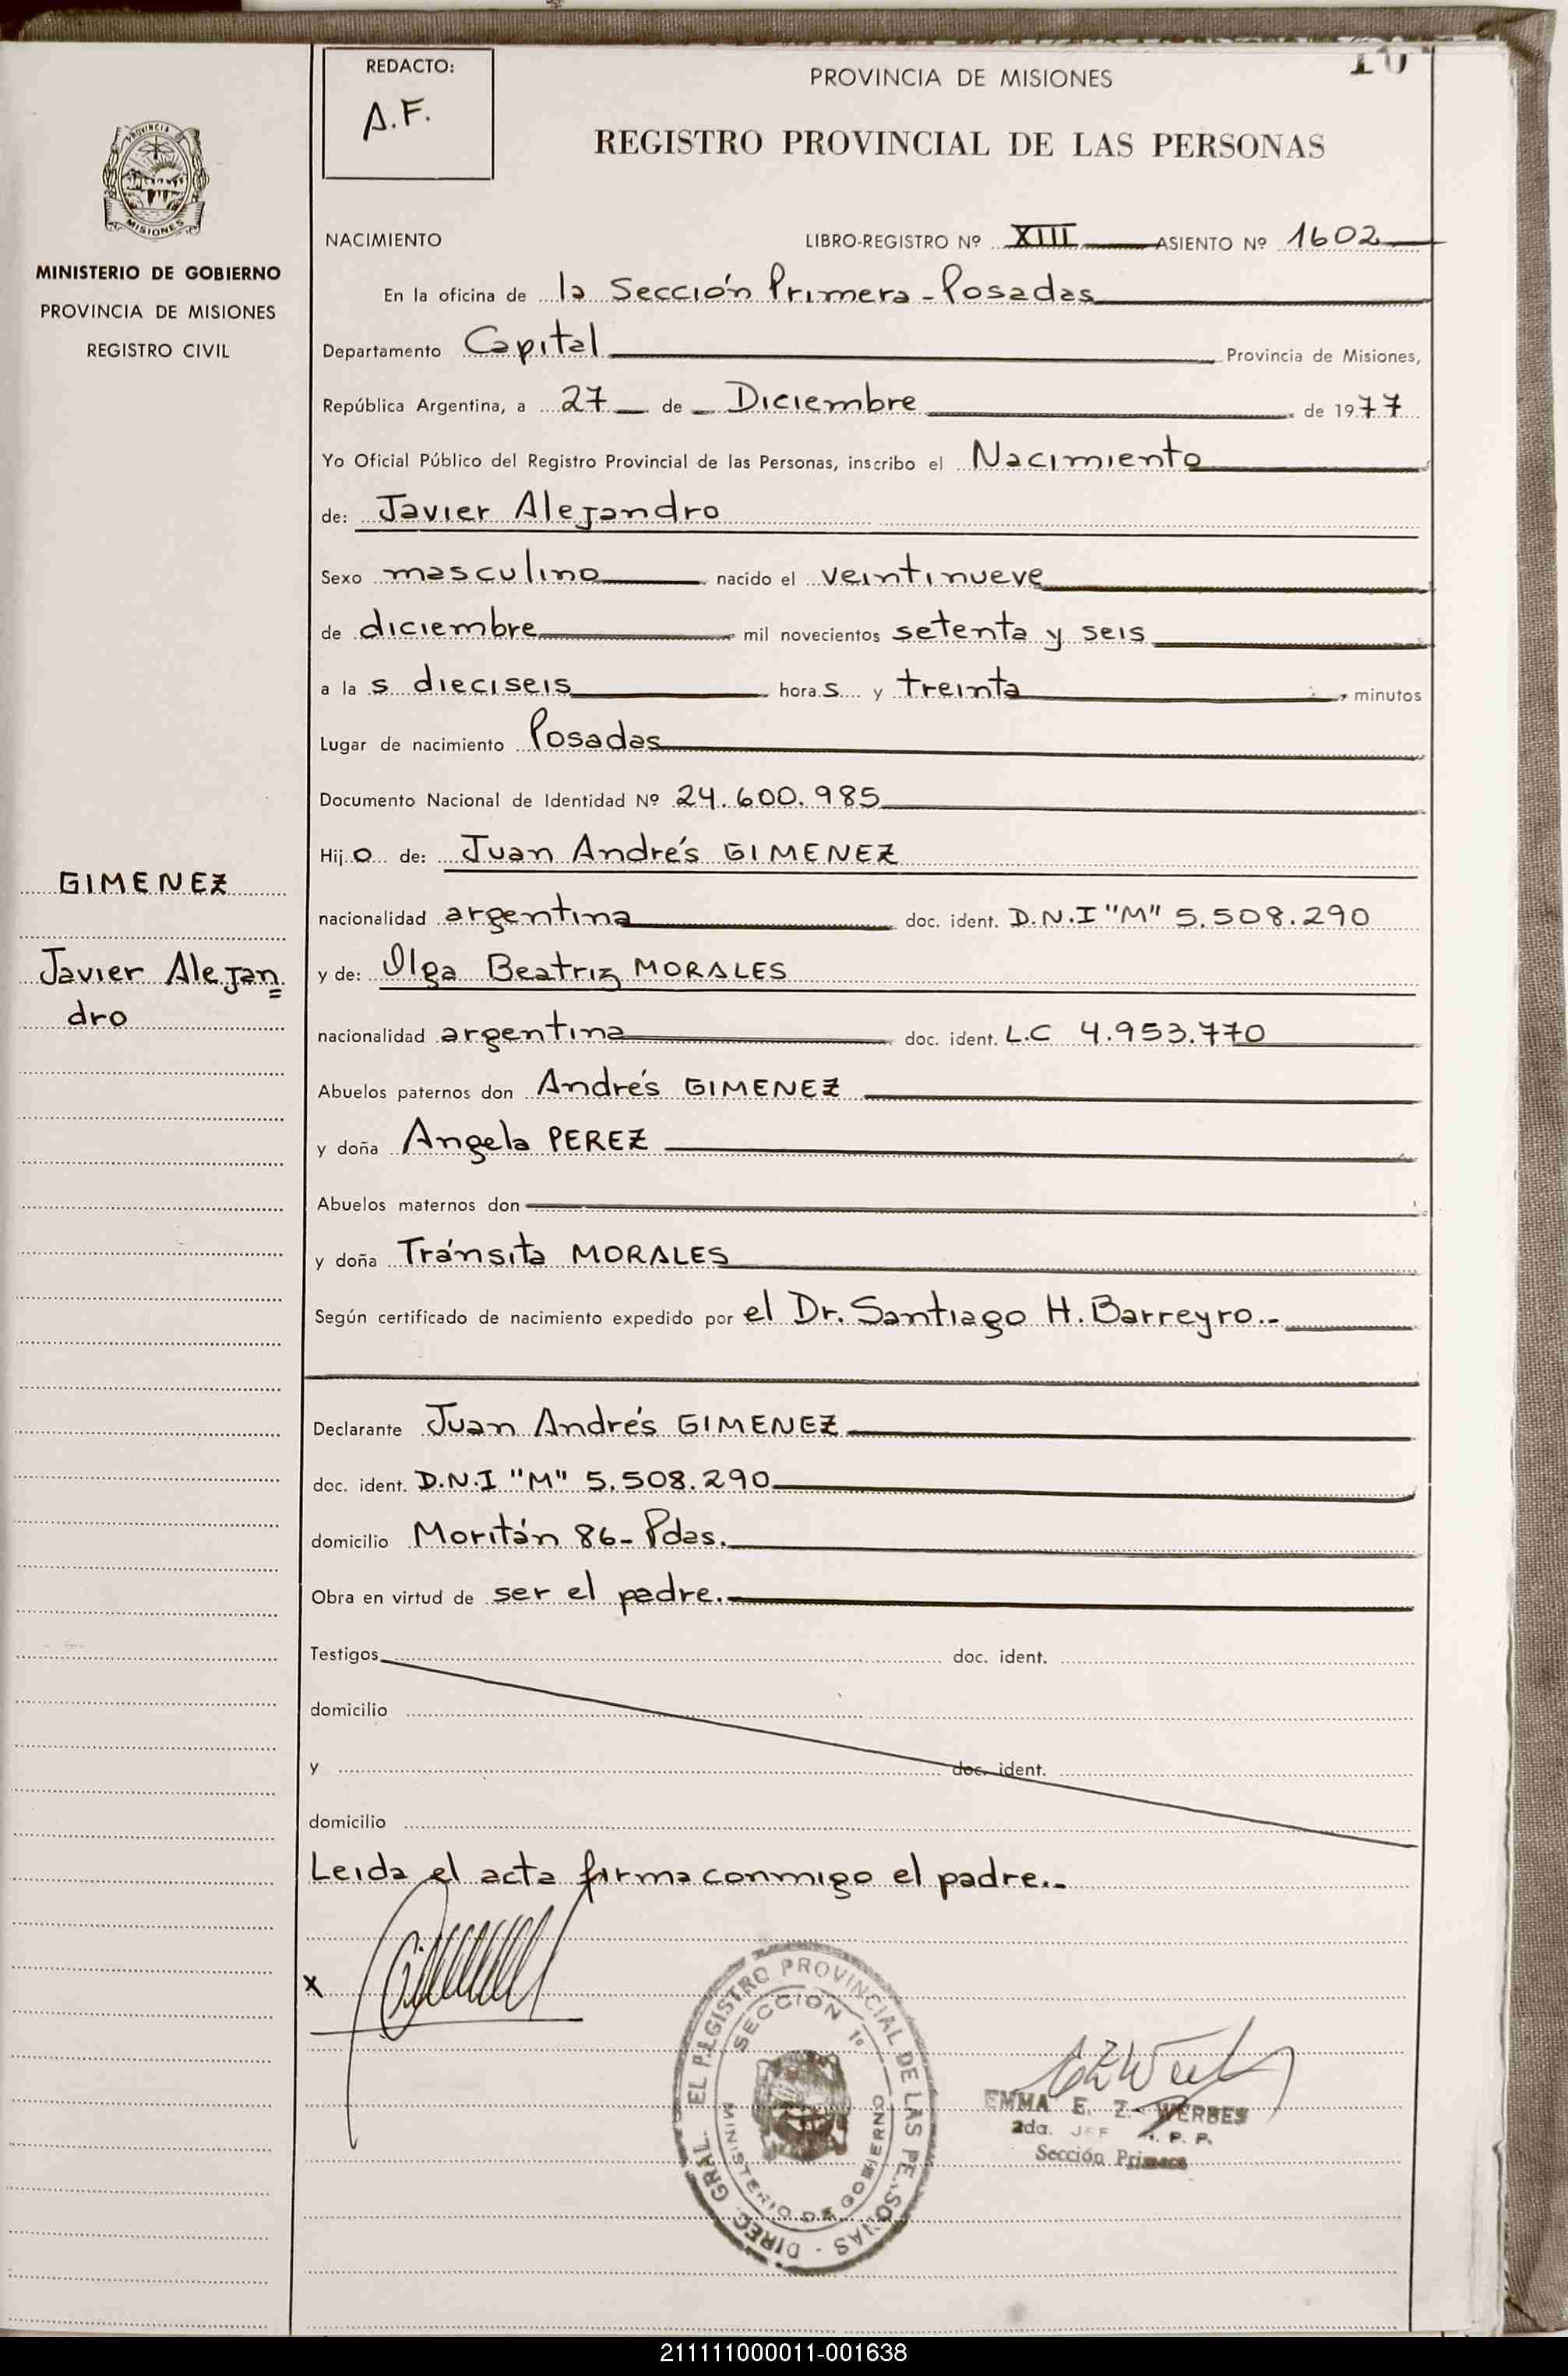 REDACTO:
A.F.
10
PROVINCIA DE MISIONES
REGISTRO PROVINCIAL DE LAS PERSONAS
PROVINCIA DE
MISIONES
MINISTERIO DE GOBIERNO
PROVINCIA DE MISIONES
REGISTRO CIVIL
NACIMIENTO LIBRO-REGISTRO Nº XIII ASIENTO Nº 1602
En la oficina de la Sección Primera - Posadas
Departamento Capital Provincia de Misiones,
República Argentina, a 27 de Diciembre de 1977
Yo Oficial Público del Registro Provincial de las Personas, inscribo el Nacimiento
de: Javier Alejandro
Sexo masculino nacido el veintinueve
de diciembre mil novecientos setenta y seis
a la s dieciseis hora s y treinta minutos
Lugar de nacimiento Posadas
Documento Nacional de Identidad Nº 24.600.985
Hij o de: Juan Andrés GIMENEZ
GIMENEZ
nacionalidad argentina doc. ident. D.N.I "M" 5.508.290
Javier Alejan
dro
y de: Olga Beatriz MORALES
nacionalidad argentina doc. ident. L.C 4.953.770
Abuelos paternos don Andrés GIMENEZ
y doña Angela PEREZ
Abuelos maternos don
y doña Tránsita MORALES
Según certificado de nacimiento expedido por el Dr. Santiago H. Barreyro.-
Declarante Juan Andrés GIMENEZ
doc. ident. D.N.I "M" 5.508.290
domicilio Moritán 86- Pdas.
Obra en virtud de ser el padre.
Testigos doc. ident.
domicilio
y doc. ident.
domicilio
Leida el acta firma conmigo el padre.-
x
DIREC. GRAL. EL REGISTRO PROVINCIAL DE LAS PERSONAS
SECCION 1º
MINISTERIO DE GOBIERNO
EMMA E. Z. WERBES
2da. JEF R. P. P.
Sección Primera
211111000011-001638